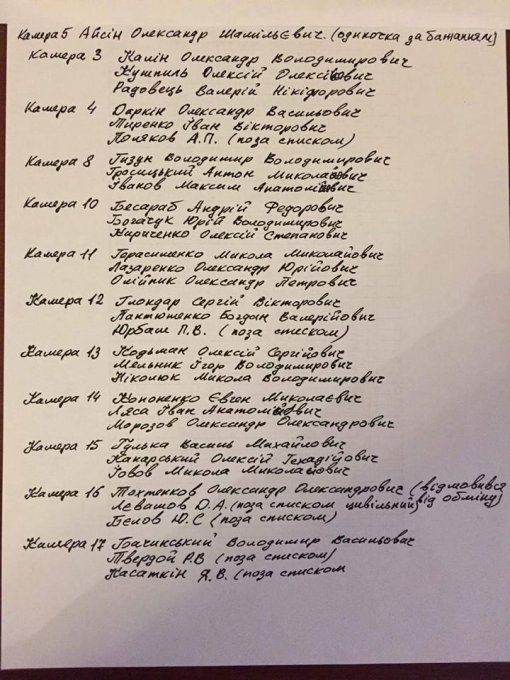 Камера 5 Айсін Олександр Шамільєвич. (одиночка за бажанням)
Камера 3 Калін Олександр Володимирович
Кушпиль Олексій Олексійович
Радовець Валерій Нікіфорович
Камера 4 Даркін Олександр Васильович
Тиренко Іван Вікторович
Поляков А.П. (поза списком)
Камера 8 Гиздун Володимир Володимирович
Гросицький Антон Миколайович
Іванов Максим Анатолійович
Камера 10 Бесараб Андрій Федорович
Богачук Юрій Володимирович
Кириченко Олексій Степанович
Камера 11 Герасименко Микола Миколайович
Лазаренко Олександр Юрійович
Олійник Олександр Петрович
Камера 12 Глондар Сергій Вікторович
Пантюшенко Богдан Валерійович
Юрбаш П.В. (поза списком)
Камера 13 Кодьман Олексій Сергійович
Мельник Ігор Володимирович
Ніколюк Микола Володимирович
Камера 14 Кононенко Євген Миколаєвич
Ляса Іван Анатолійович
Морозов Олександр Олександрович
Камера 15 Гулька Василь Михайлович
Канарський Олексій Генадійович
Іовов Микола Миколайович
Камера 16 Тохтенков Олександр Олександрович (відмовився від обміну)
Левашов О.А. (поза списком цивільний)
Бєлов Ю.С (поза списком)
Камера 17 Бачинський Володимир Васильович
Твердой Р.В (поза списком)
Касаткін Я.В. (поза списком